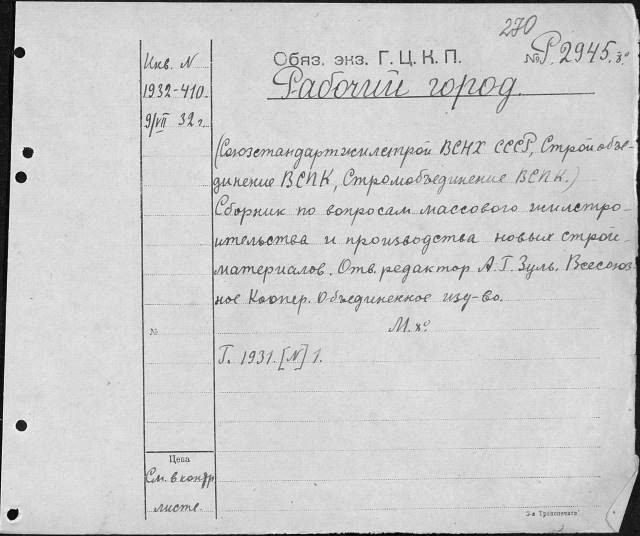 270
Обяз. экз. Г. Ц. К. П.
№ Р. 2945. 8º
Рабочий город.
Инв. N
1932-410.
9/VII 32 г.
(Союзстандартжилстрой ВСНХ СССР, Строй объе-
динение ВСПК, Стромобъединение ВСПК.)
Сборник по вопросам массового жилстро-
ительства и производства новых строй-
материалов. Отв. редактор А. Г. Зуль. Всесоюз-
ное Коопер. Объединенное изд-во.
М. 8º
№
Г. 1931. [N] 1.
Цена
См. в контр
листе.